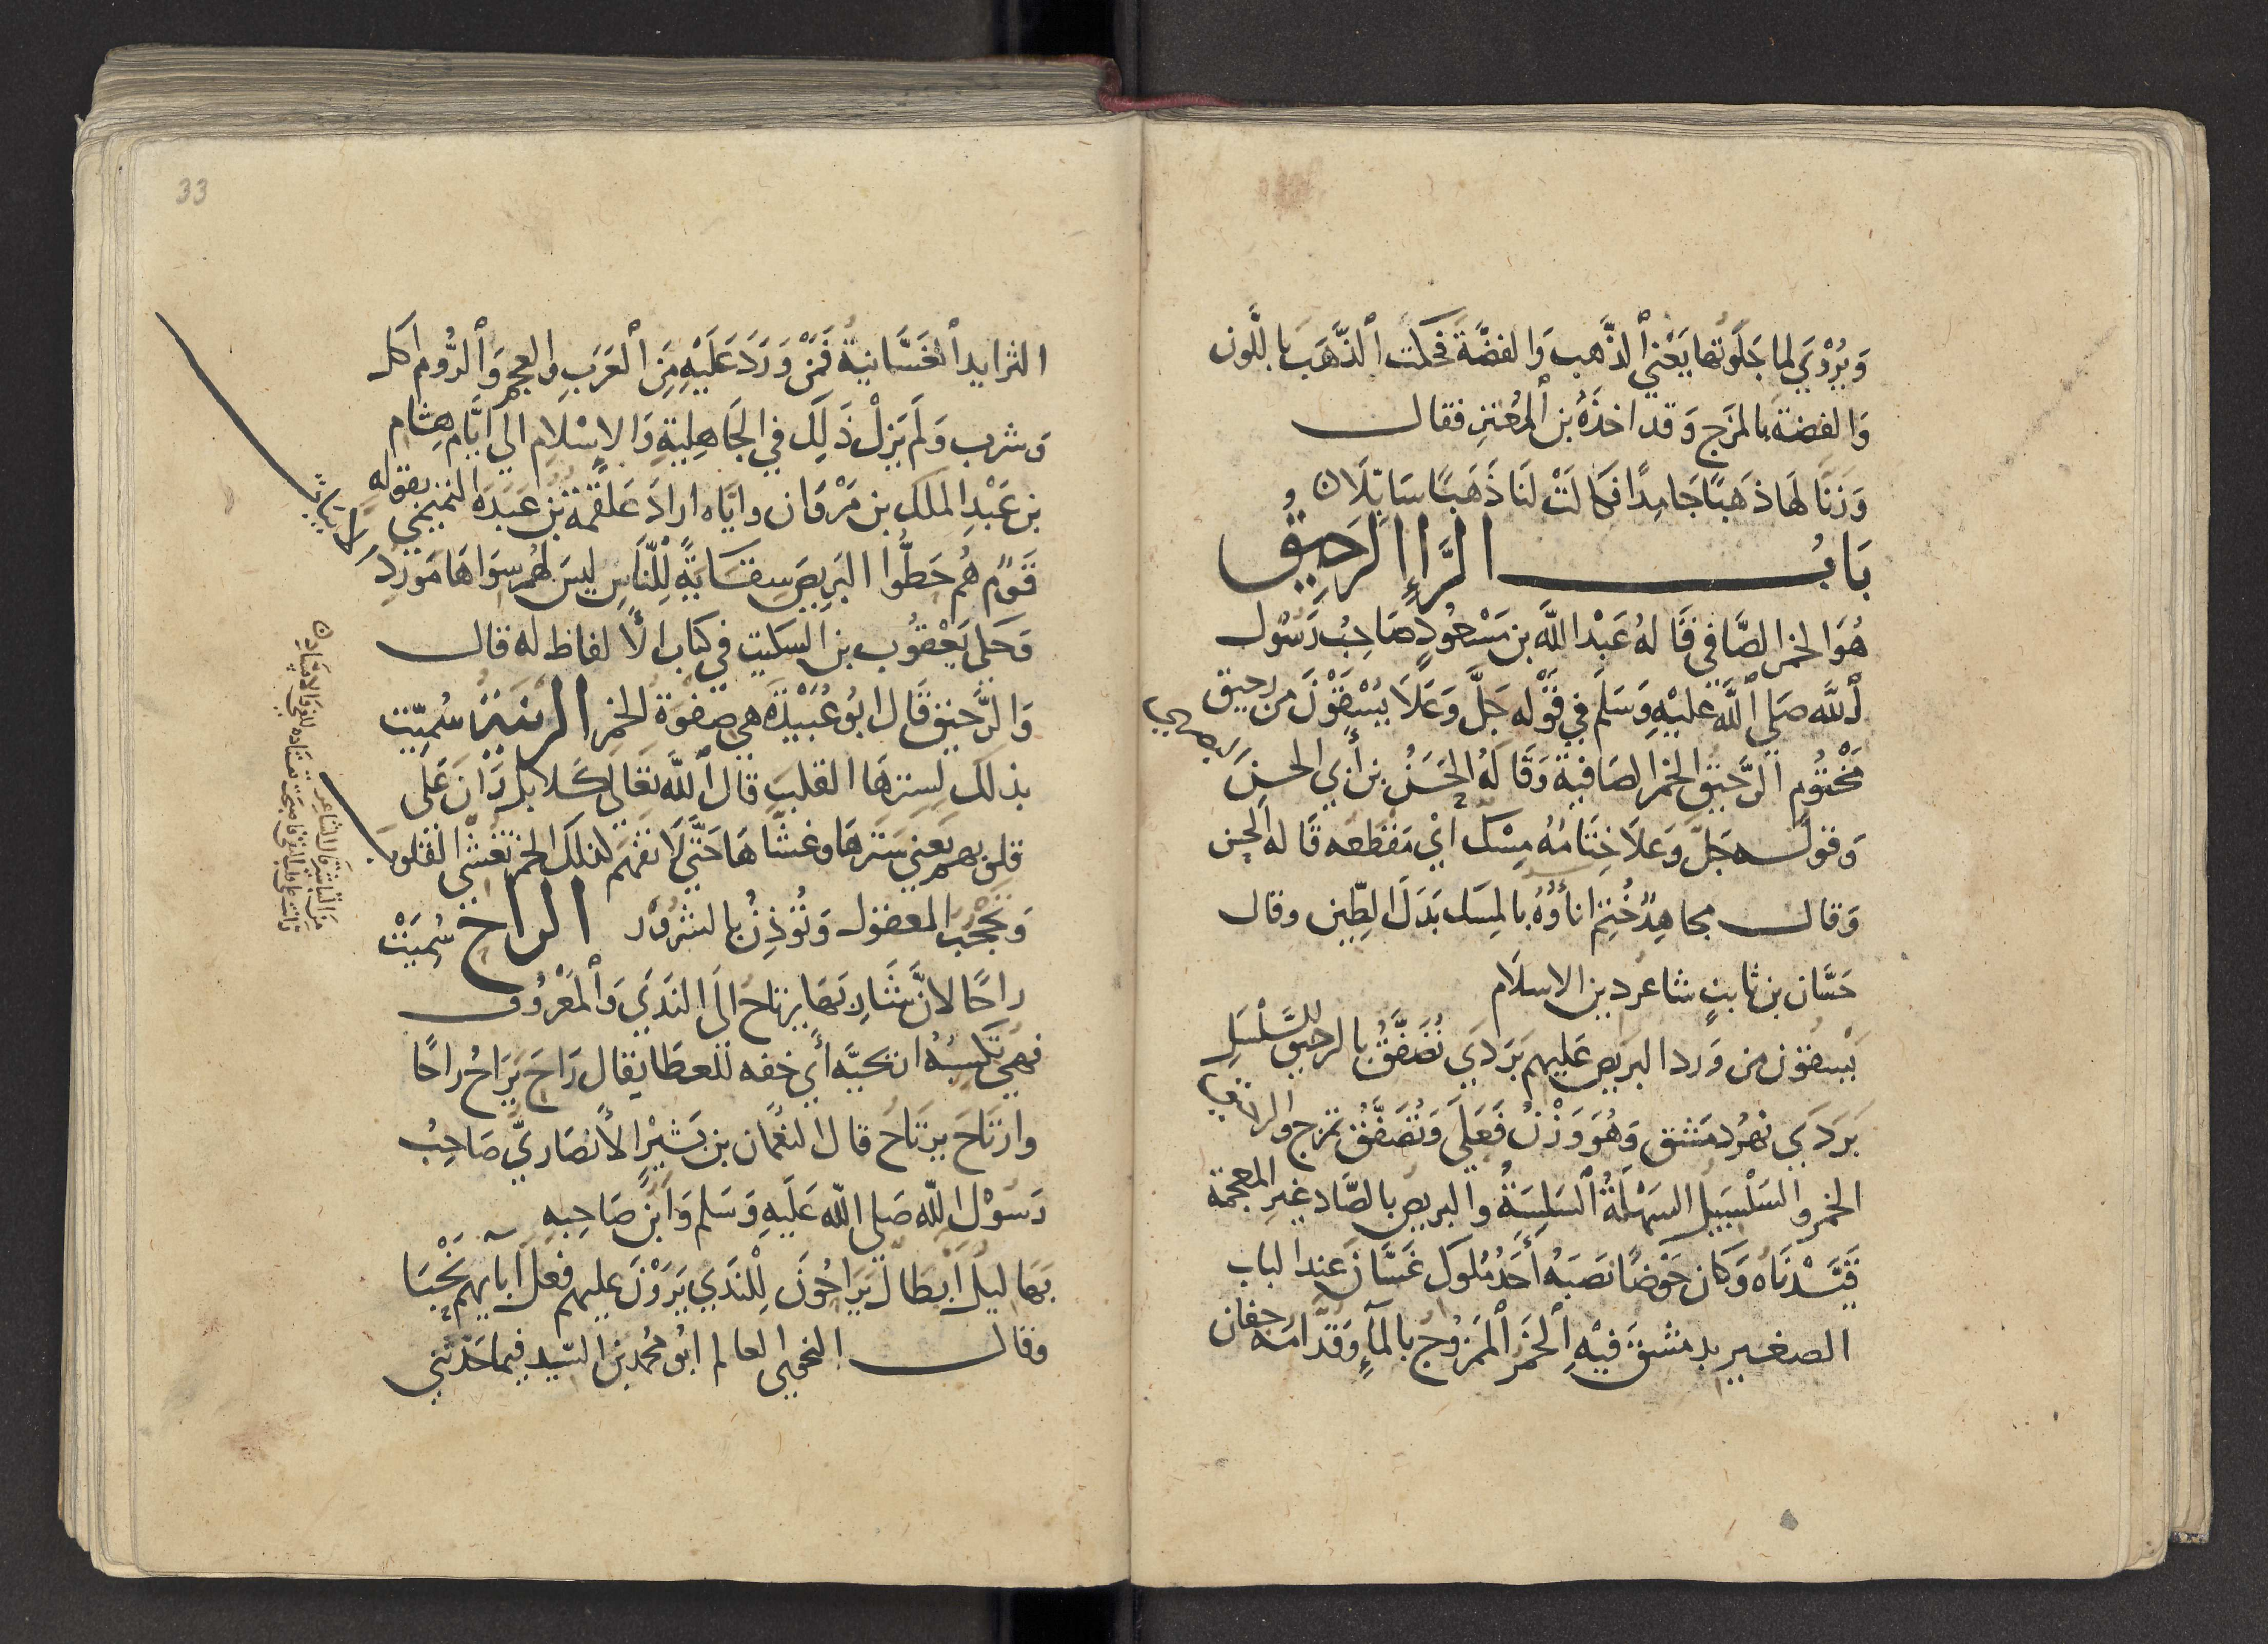 وَيُرْوَي لما جَلَوتها يَعْني ٱلذَّهب وَالفضَّةَ فحكت ٱلذَّهَبَ باللَّون
وَالفِضةَ بالمزَج وَقد اخذَهُ بن ٱلمُعْتزِ فقال
وَزنَا لهَا ذهبًا جَامِدًا فكالَتْ لَنا ذَهَبًا سَائلَا ن
بَابُ الرَّاءِ الرَحِيْقُ
هُوَ الخمر الصَّافي قَالهُ عَبْد اللَّه بن مَسْعُودٍ صَاحِبُ رَسُول
ٱللَّه صَلي ٱللَّه عليْهِ وَسَلَم في قَوْله جَلَّ وَعَلَا يُسْقَوْنَ من رحيق
مَخْتوُم الرَّحيق الخمر الصَافية وَقَالهُ الحَسَنُ بن أبي الحسن البصري
وَقولـه جَلّ وَعلَا خِتَامُهُ مِسْك أيْ مقطعه قَاله الحسن
وَقال مجاهِدٌ خُتِمَ اناؤُهُ بالمِسَك بَدَلَ الطِّين وقال
حَسَّان بن ثابتٍ شاعر دين الاسلَام
يُسقون من وَرد البريصَ عَليهم بَرَدَي تُصَفَّقُ بالرحيق السَّلْسَلِ
بَرَدَي نهرُ دمَشق وَهُوَ وَزْنُ فَعَلَي وَتُصَفَّقُ تمزج والرحيق
الخمر والسَلْسَبيل السَهْلَةُ ٱلسَلِسَةُ والبريص بالصَّاد غيرِ المعجمة
قيَّدْنَاهُ وَكان حَوْضًا نصَبَهُ أحَدُ مُلوك غَسَّان عند الباب
الصغير بدمشق فيْهِ ٱلخَمر ٱلمَمْزُوج بالمآءِ وَقدَّامَه جفان
33
الثرايد ٱلغَسَّانية فَمَنْ وَرَدَ عَلَيْهِ مِنَ ٱلعَرَبِ والعجم وَٱلرُّوم اكل
وَشرب وَلَم يَزلْ ذَلِكَ في الجَاهِليةِ وَالإسْلَامِ الي ايَّام هِشام
بن عَبْدِ الملك بن مَرْوَان وايّاه ارادَ عَلقَمَة بْن عَبَدَة التميمي بقوله
قَومٌ هُم حَطُّوا البَريصَ سِقَايَةً لِلنَّاسِ ليسَ لهُم سِوَاهَا مَوْردُ
وَحَكي يَعْقُوب بن السكيت في كتاب الألفاظ له قال
وَالرَّحيق قَال ابُو عُبَيْدَة هي صَفوَة الخمر الرينة سُميّت
بذلك لِسترهَا القلبَ قال ٱللَّه تعَالي كَلا بَل رَانَ عَلي
قلوبهم يَعني سَترَهَا وغشّاهَا حَتَّي لَا تفهَم لذلك الخمر تغشي القلوب
وَتحجُب المعقول وَتُوذِنُ بالشرُوْر الراح سُميَتْ
راحًا لانَّ شَاربَهَا يرتاحُ الَي النَدَي وَٱلمَعْرُوْف
فهي تكسبُهُ اريحيَّه أي خفه للعطا يقال رَاحَ يَرَاحُ راحًا
وارْتَاحَ يرتَاح قال النعْمَان بن بَشيْر الأنصَاريّ صَاحِبُ
رَسُوْل اللّه صَلي اللّه عَلَيهِ وَسَلم وَابنُ صَاحِبهِ
بهَاليل ابطال يَرَاحُونَ لِلْندَي يَرَوْنَ عليهم فعل آبآيهم نَحْبَا
وقال النحوي العالم ابُو محمد بن السّيد فيما حَدثني